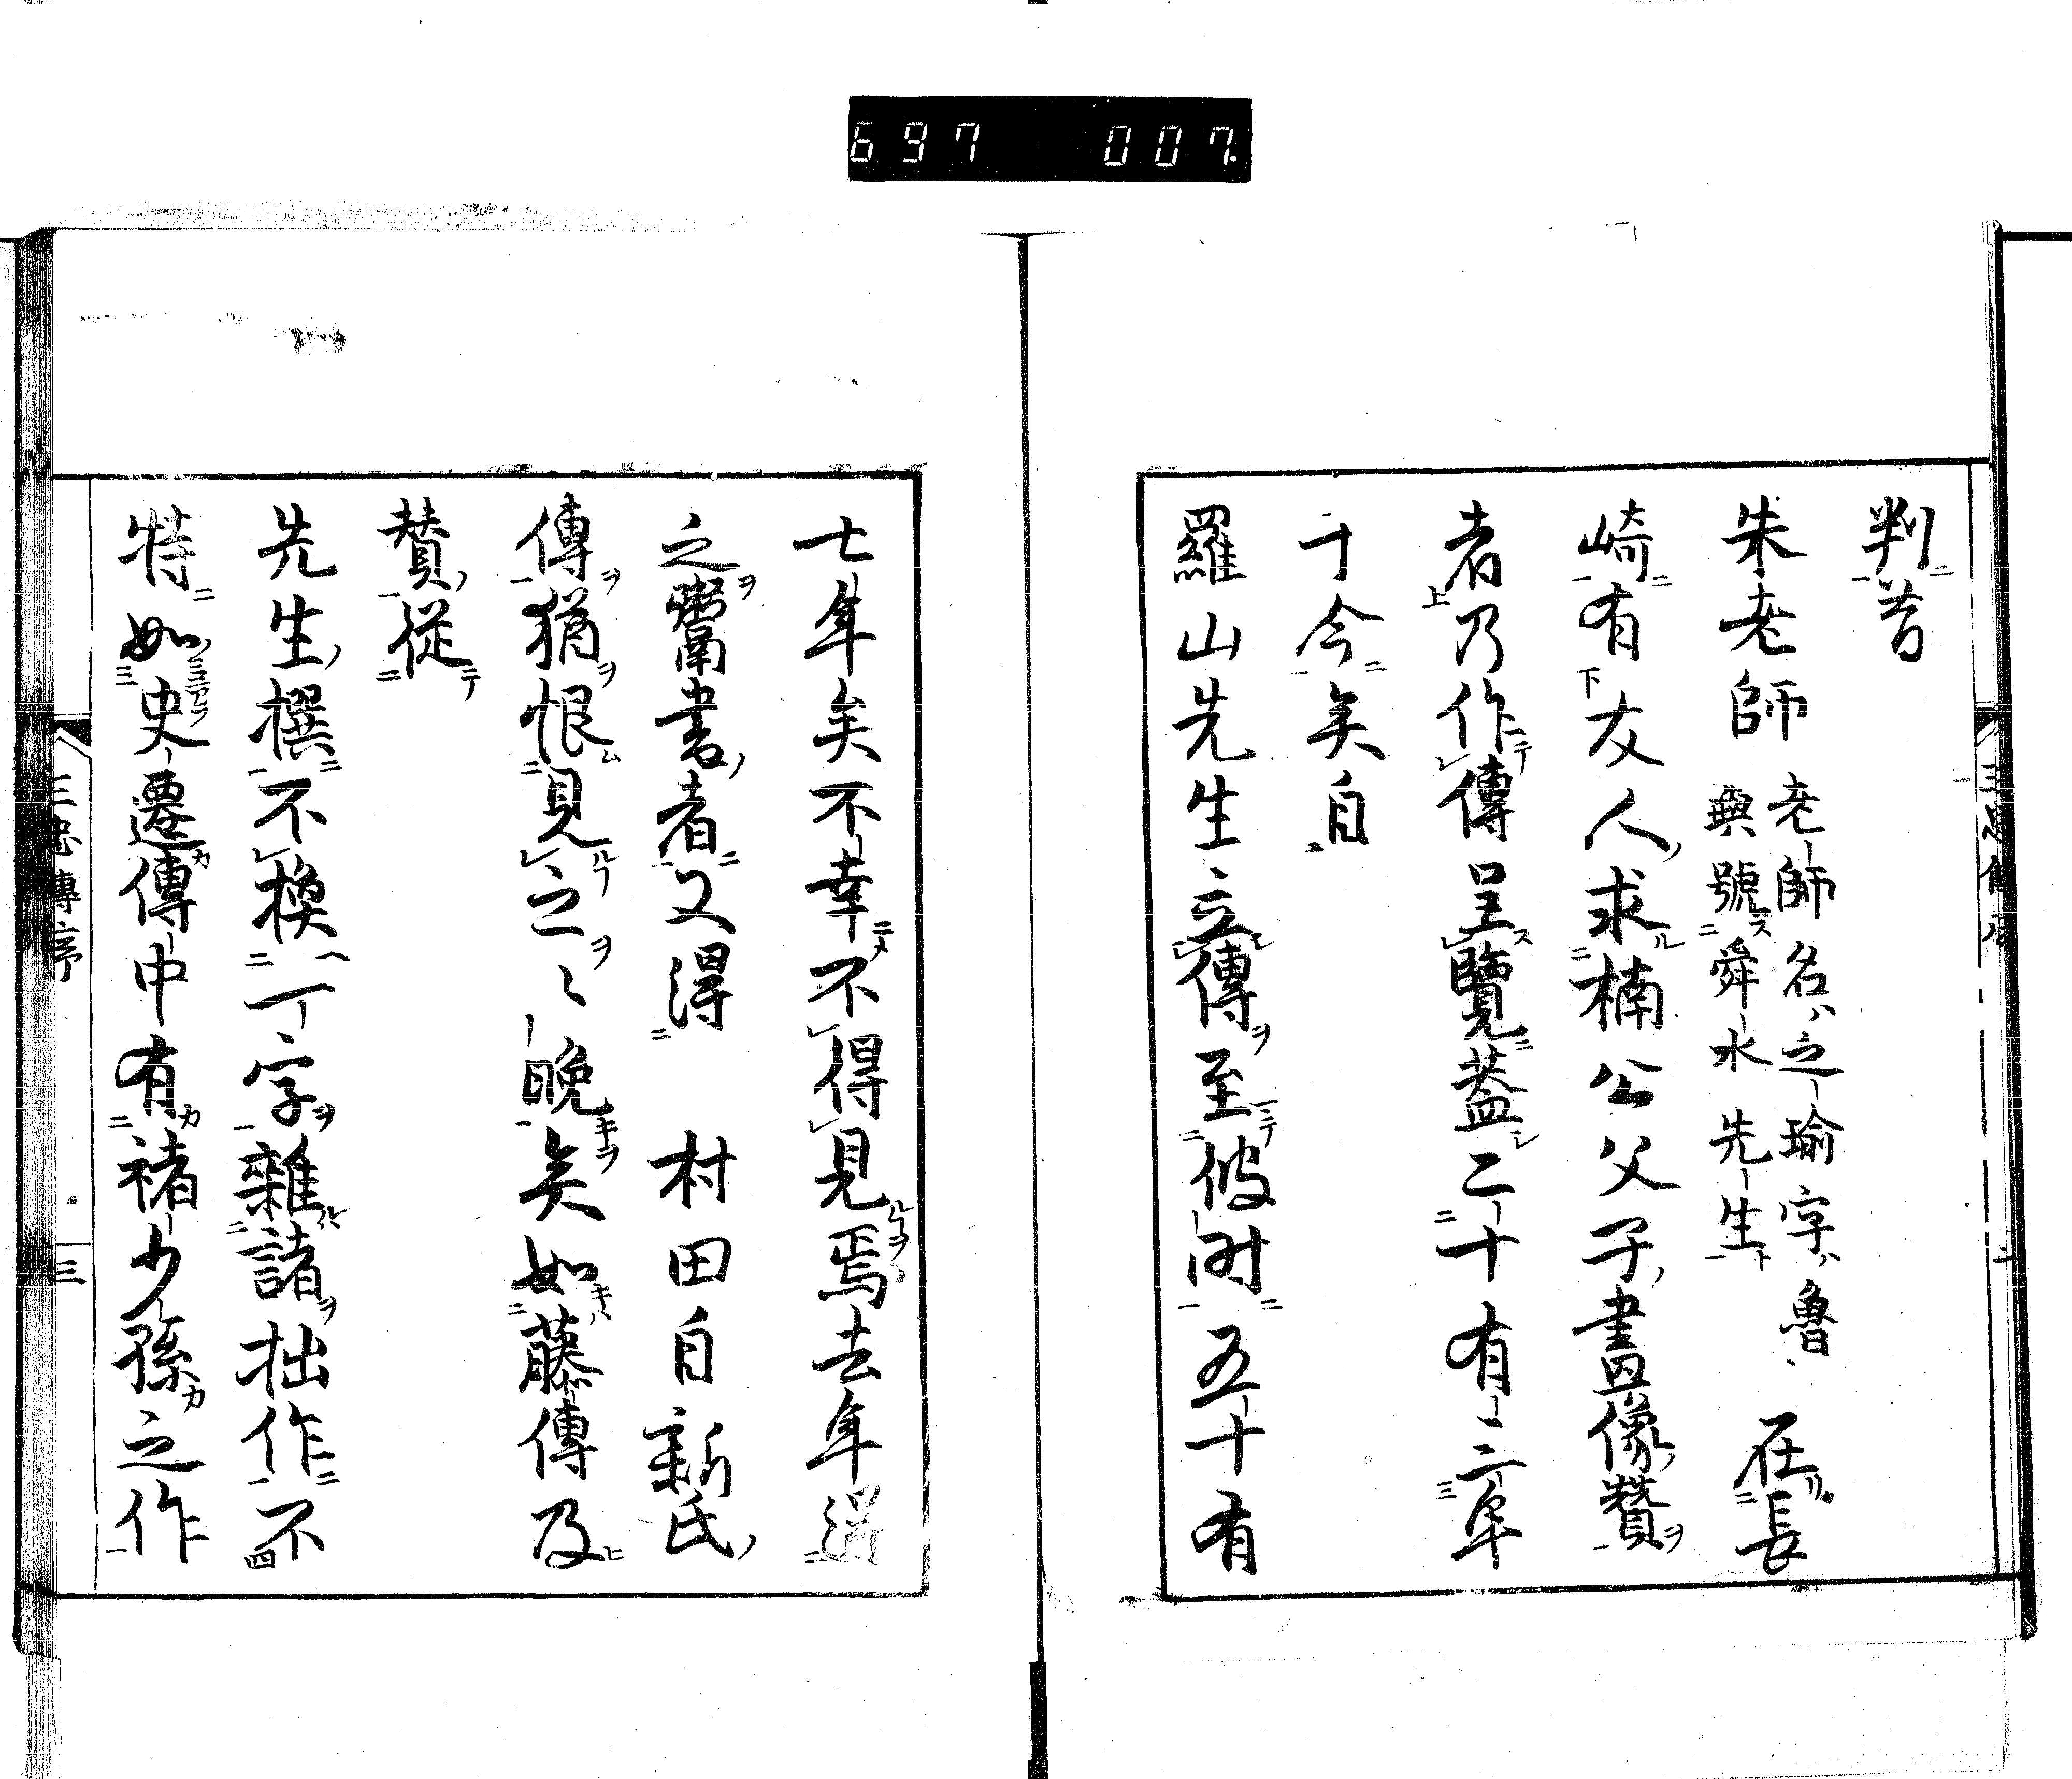 697 007
判昔
朱老師 老師名之瑜字魯
璵號舜水先生 在長
崎有友人求楠公父子畫像贊
者乃作傳呈覽蓋二十有二年
于今矣自
羅山先生立傳至彼时五十有
七年矣不幸不得見焉去年
之鬻書者又得 村田自新氏
傳猶恨見之〻晚矣如藤傳及
賛從
先生撰不換一字雜諸拙作不
特如史遷傳中有褚少孫之作
三忠傳序 三